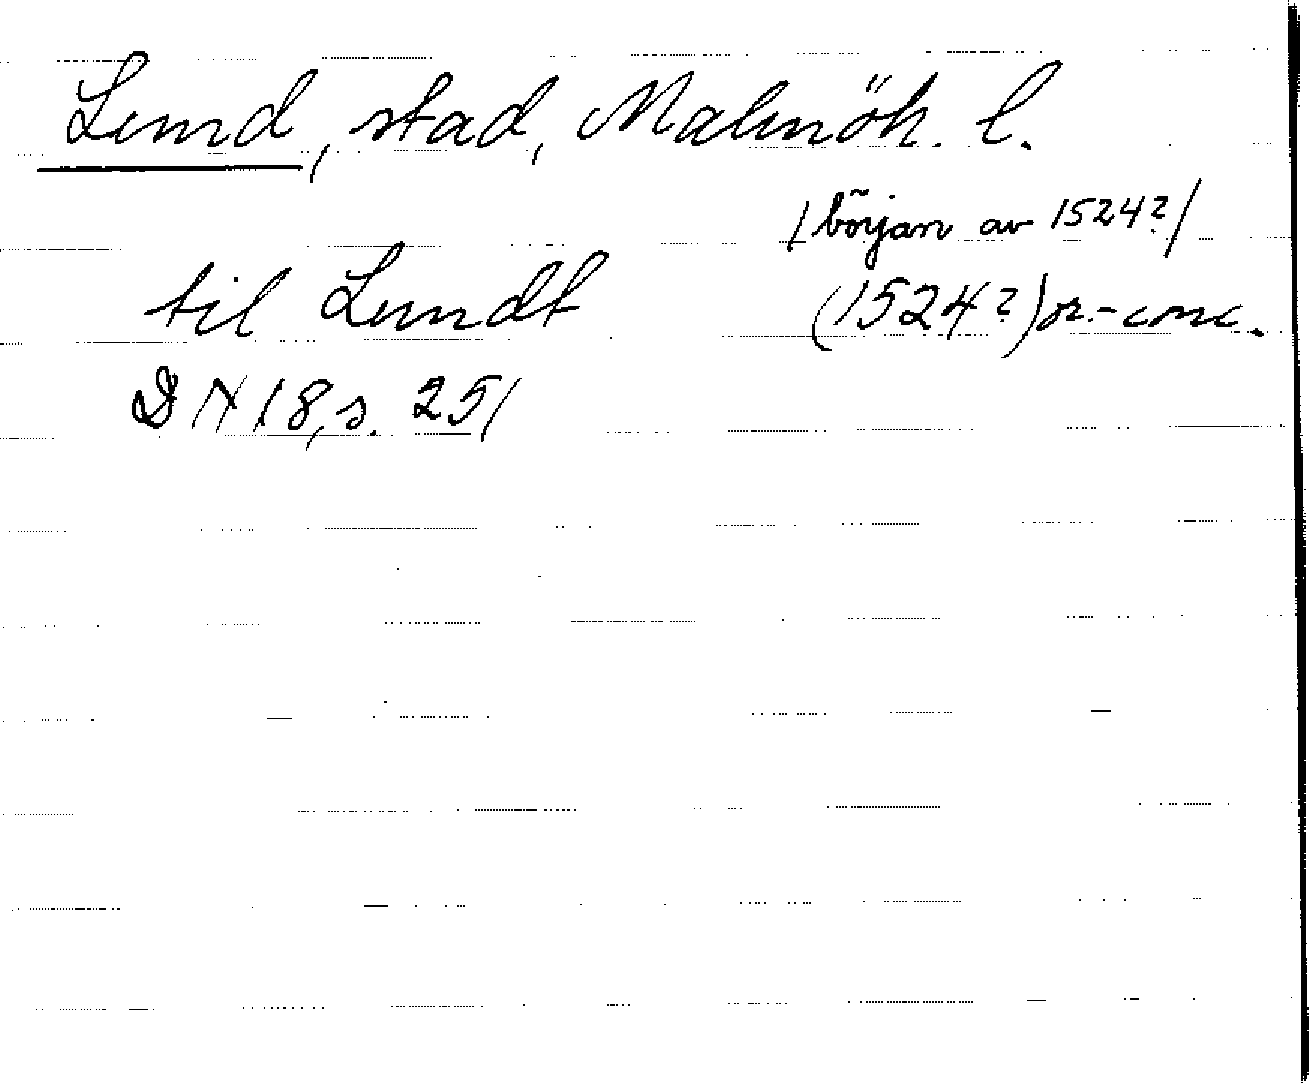 Lund, stad, Malmöh. l.
/början av 1524?/
til Lundt (1524?) or.-conc.
DN 18, s. 251